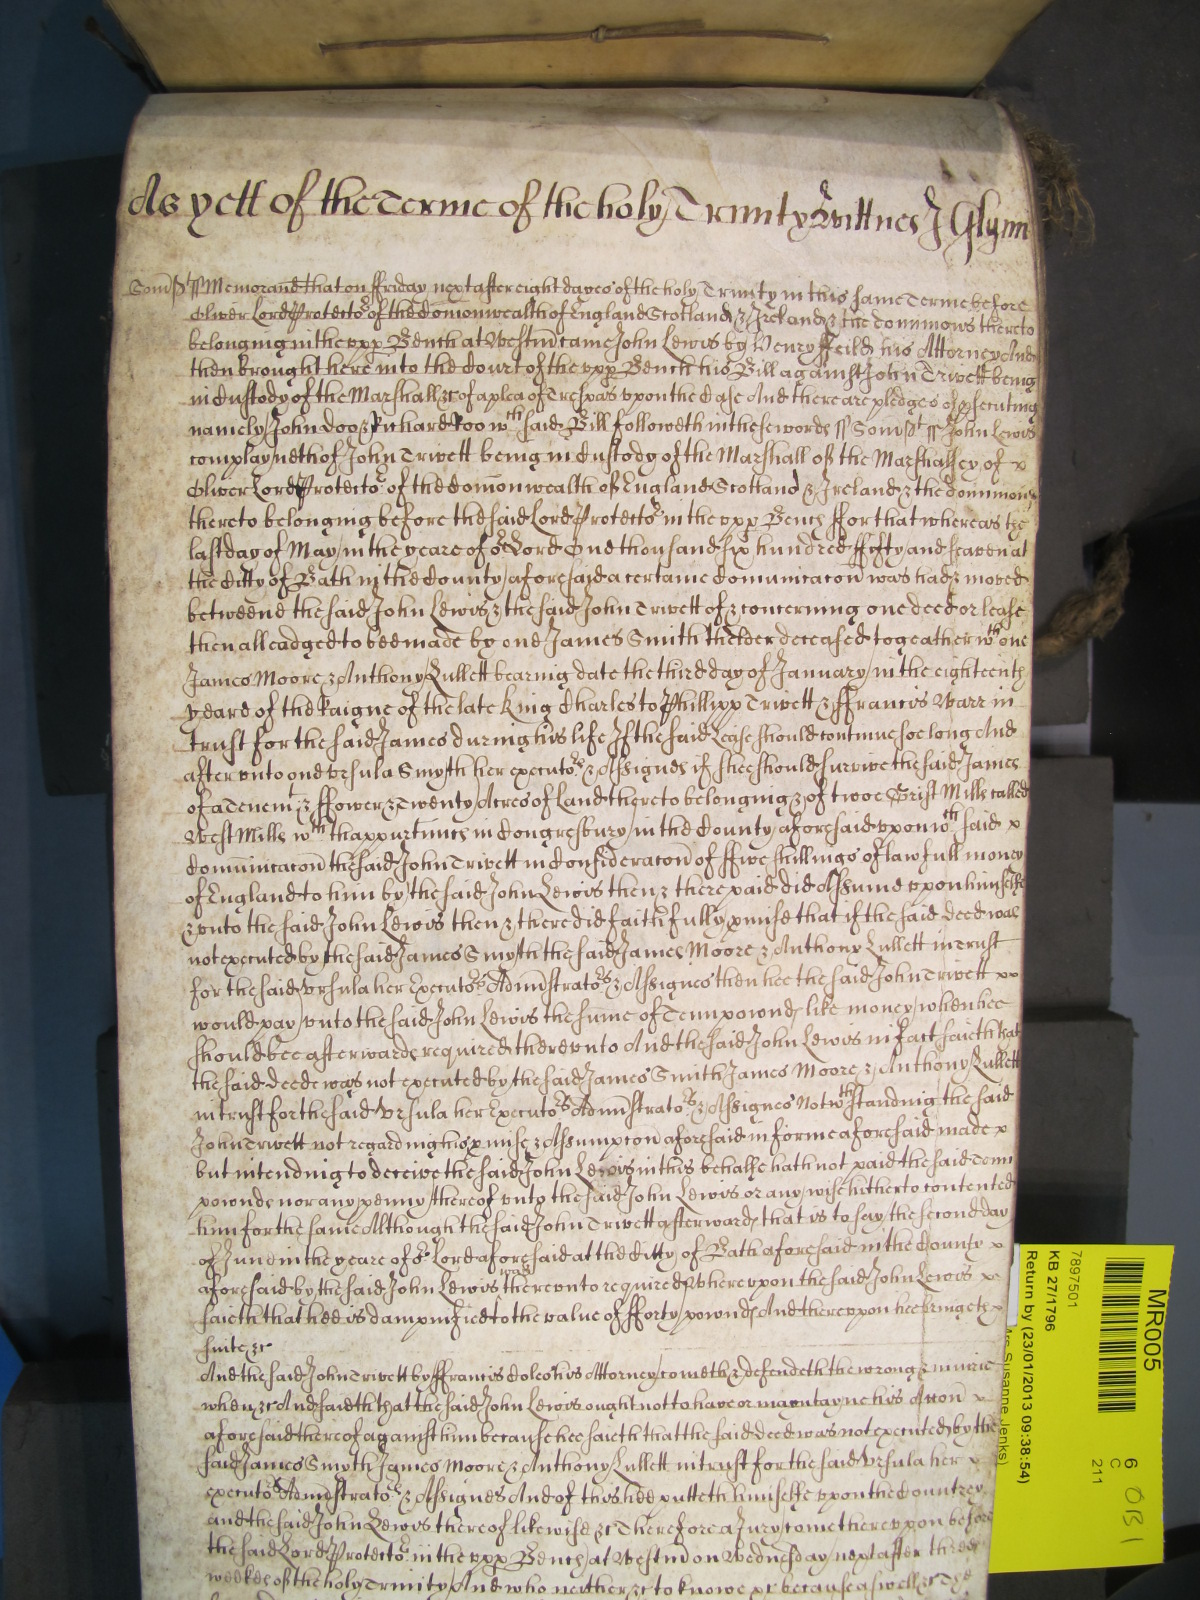 As yett of the Terme of the holy Trinity Wittnes J Glynn
Som̄st ss Memorand that on ffriday next after eight dayes of the holy Trinity in this same Terme before
Oliver Lord Protector of the Comonwealth of England Scotland & Ireland & the Dominions thereto
belonging in the vpp Bench at Westm̄ came John Lewis by Henry ffeild his Attorney And
then brought here into the Court of the vpp Bench his Bill against John Trivett being
in Custody of the Marshall &c of a plea of Trespas vpon the Case And there are pledges of psecuting
namely John Doo & Richard Roo wch said Bill followeth in these words ss Som̄st ss John Lewis
complayneth of John Trivett being in Custody of the Marshall of the Marshalsey of x
Oliver Lord Protector of the Comonwealth of England Scotland & Ireland & the dominions
thereto belonging before the said Lord Protector in the vpp Bench ffor that whereas the
last day of May in the yeare of or Lord One thousand six hundred ffifty and seaven at
the Citty of Bath in the County aforesaid a certaine Comunicacon was had & moved
betweene the said John Lewis & the said John Trivett of & concerning one deed or lease
then alleadged to bee made by one James Smith thelder deceased togeather wth one
James Moore & Anthony Lullett bearing date the third day of January in the eighteenth
yeare of the Raigne of the late King Charles to Phillipp Trivett & ffrancis Warr in
trust for the said James during his life If the said Lease should continue soe long And
after vnto one Vrsula Smyth her executors & Assignes if shee should survive the said James
of a Tenemt & ffower & Twenty Acres of Land thereto belonging & of twoe Grist Mills called
West Mills wth thappurtincs in Congresbury in the County aforesaid vpon wch said x
Comunicacon the said John Trivett in Consideracon of ffive shillings of lawfull money
of England to him by the said John Lewis then & there paid did Assume vpon himselfe
& vnto the said John Lewis then & there did faithfully pmise that if the said deed was
not executed by the said James Smyth the said James Moore & Anthony Lullett in trust
for the said Vrsula her Executors Admistrators & Assignes then hee the said John Trivett xx
would pay vnto the said John Lewis the sume of Tenn pownds like money when hee
should bee afterwards required therevnto And the said John Lewis in fact saieth that
the said deede was not executed by the said James Smith James Moore & Anthony Lullett
in trust for the said Vrsula her Executors Admistrators & Assignes Notwthstanding the said
John Trivett not regarding his pmise & Assumpcon aforesaid in forme aforesaid made x
but intending to deceive the said John Lewis in this behalfe hath not paid the said Tenn
pownds nor any penny thereof vnto the said John Lewis or any wise hitherto contented
him for the same Although the said John Trivett afterwards that is to say the second day
of June in the yeare of or Lord aforesaid at the Citty of Bath aforesaid in the County x
aforesaid by the said John Lewis therevnto was required Wherevpon the said John Lewis x
saieth that hee is dampnified to the value of fforty pownds And therevpon hee bringeth x
suite &c
And the said John Trivett by ffrancis Cole his Attorney cometh & defendeth the wrong & iniurie
when &c And saieth that the said John Lewis ought not to have or mayntayne his Accon x
aforesaid thereof against him because hee saieth that the said deed was not executed by the
said James Smyth James Moore & Anthony Lullett in trust for the said Vrsula her x
executors Admistrators & Assignes And of this hee putteth himselfe vpon the Countrey
and the said John Lewis thereof likewise &c Therefore a Jury come therevpon before
the said Lord Protector in the vpp Bench at Westm̄ on Wednesday next after three
weekes of the holy Trinity And who neither &c to knowe &c because aswell &c The
MR005
7897501
KB 27/1796
Return by (23/01/2013 09:38:54)
Susanne Jenks)
6
C
211